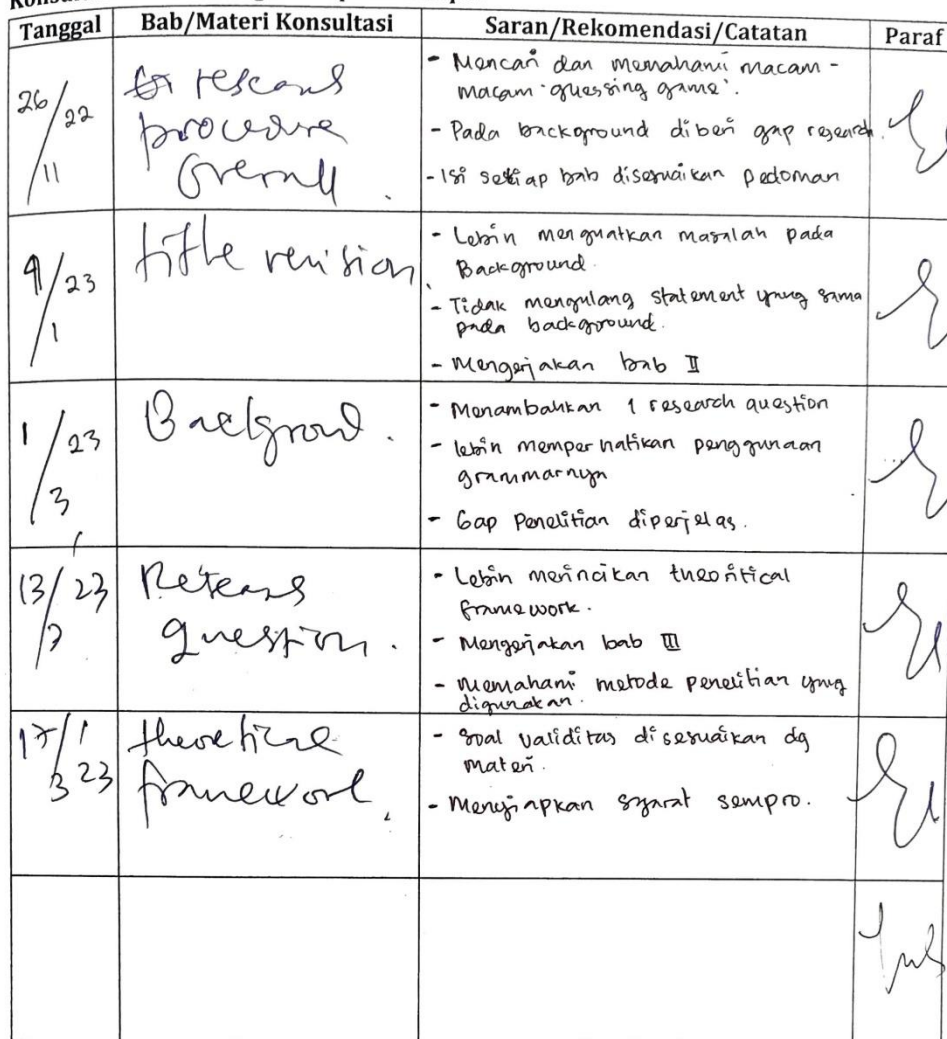 Tanggal Bab/Materi Konsultasi Saran/Rekomendasi/Catatan Paraf
26/11 22
procedure
Overall.
- Mencari dan memahami macam-
macam 'guessing game'.
- Pada background diberi gap research.
- Isi setiap bab disesuaikan pedoman
9/1 23
title revision
- Lebih menguatkan masalah pada
Background.
- Tidak mengulang statement yang sama
pada background.
- Mengerjakan bab II
1/3 23
Background.
- Menambahkan 1 research question
- lebih memperhatikan penggunaan
grammarnya
- Gap Penelitian diperjelas.
13/ 23
question.
- Lebih merincikan theoritical
framework.
- Mengerjakan bab III
- Memahami metode penelitian yang
digunakan.
17/3 23
theoretical
framework.
- Soal validitas disesuaikan dg
materi.
- Menyiapkan syarat sempro.